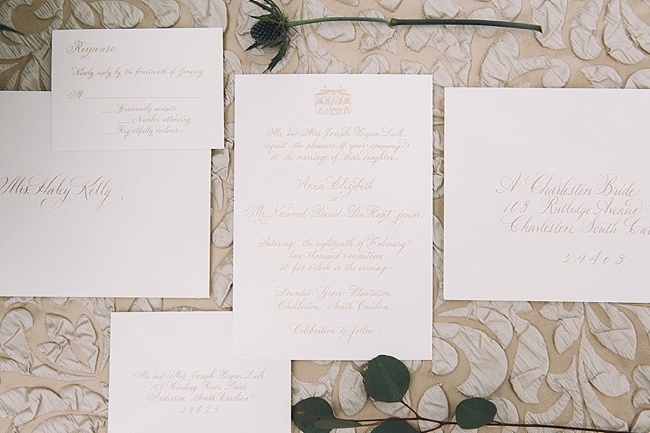 Response
Kindly reply by the fourteenth of January
M
Graciously accepts
Number attending
Regretfully declines
Mrs. Haley Kelly
Mr. and Mrs. Joseph Bryan Lusk
request the pleasure of your company
at the marriage of their daughter
Anna Elizabeth
to
Mr. Norwood David DuRant, junior
Saturday, the eighteenth of February
two thousand seventeen
at five o'clock in the evening
Lowndes Grove Plantation
Charleston, South Carolina
Celebration to follow
A Charleston Bride
103 Rutledge Avenue
Charleston, South
29403
Mr. and Mrs. Joseph Bryan Lusk
107 Winding River Drive
Anderson, South Carolina
29625